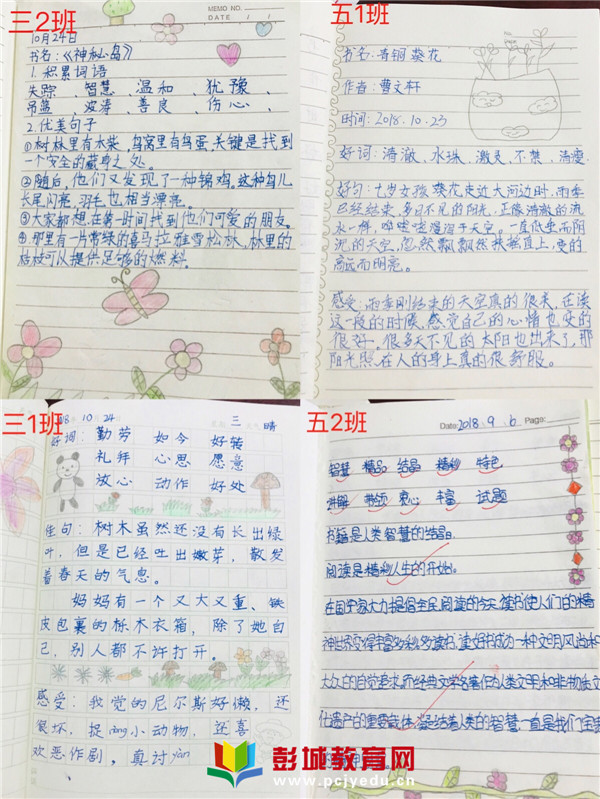 三2班
MEMO NO.
DATE / /
10月24日
书名:《神秘岛》
1.积累词语
失踪、智慧、温和、犹豫、
吊篮、波涛、善良、伤心、
2.优美句子
①树林里有木柴,鸟窝里有鸟蛋,关键是找到
一个安全的藏身之处。
②随后,他们又发现了一种锦鸡。这种鸟儿
长尾闪亮,羽毛也相当漂亮。
③大家都想在第一时间找到他们可爱的朋友。
④那里有一片常绿的喜马拉雅雪松林,林里的
枯枝可以提供足够的燃料。
五1班
书名:青铜葵花
作者:曹文轩
时间:2018.10.23
好词:清澈、水珠、激灵、不禁、清凜
好句:七岁女孩葵花走近大河边时,雨季
已经结束,多日不见的阳光,正像清澈的流
水一样,哗啦啦漫泻于天空。一直低垂而阴
沉的天空,忽然飘飘然扶摇直上,变的
高远而明亮。
感受:雨季刚结束的天空真的很美,在读
这一段的时候,感觉自己的心情也变的
很好,很多天不见的太阳也出来了,那
阳光照在人的身上真的很舒服。
三1班
10.24 三 晴
好词:勤劳 如今 好转
礼拜 心思 愿意
放心 动作 好处
佳句:树木虽然还没有长出绿
叶,但是已经吐出嫩芽,散发
着春天的气息。
妈妈有一个又大又重、铁
皮包裹的栎木衣箱,除了她自
己,别人都不许打开。
感受:我觉的尼尔斯好懒,还
很坏,捉nòng小动物,还喜
欢恶作剧,真讨yàn
五2班
Date:2018.9.6 Page:
智慧 精品 结晶 精彩 特色
讲解 带领 衷心 丰富 试题
书籍是人类智慧的结晶。
阅读是精彩人生的开始。
在国家大力提倡全民阅读的今天,读书使人们的精
神世界变得丰富多彩,多读书,读好书成为一种文明风尚和
大众的自觉要求,而经典文学名著作为人类文明和非物质文
化遗产的重要载体,凝结着人类的智慧,一直是我们宝贵
彭城教育网
www.pcjyedu.cn